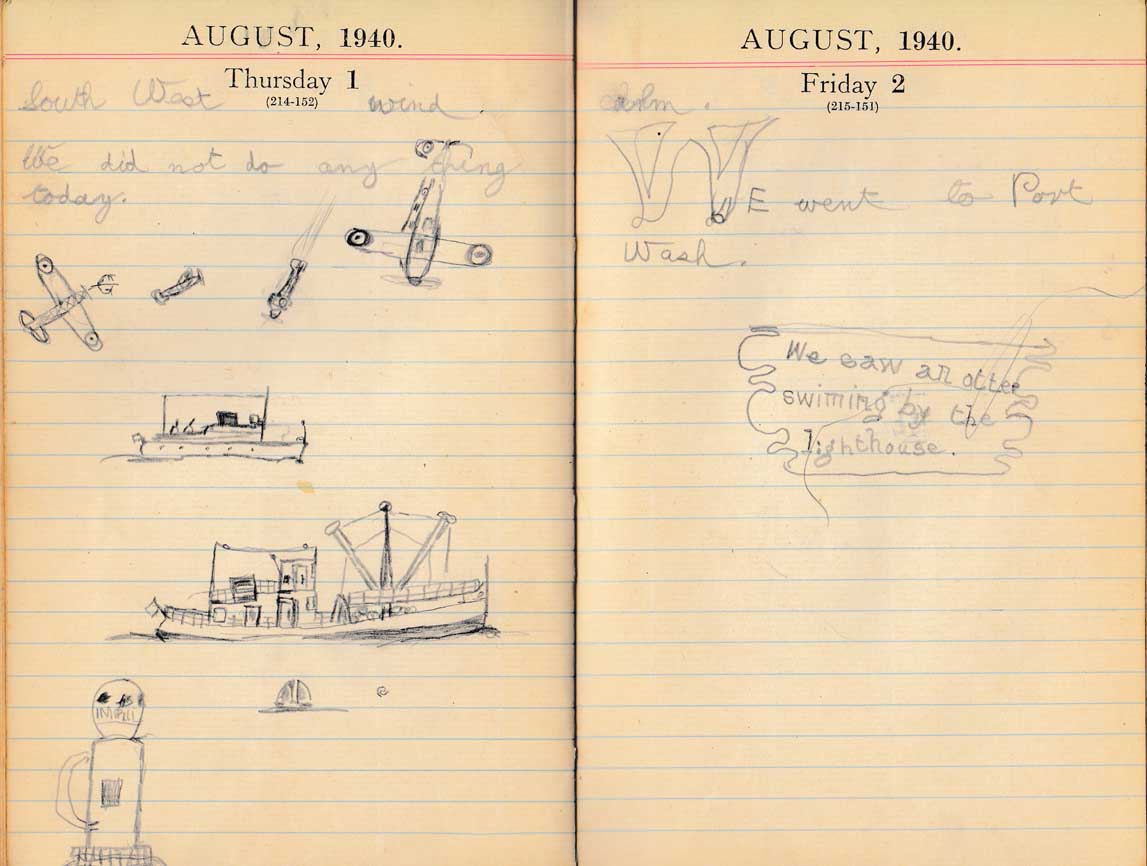 AUGUST, 1940.
Thursday 1
(214-152)
South West wind.
We did not do any thing
today.
AUGUST, 1940.
Friday 2
(215-151)
Calm.
WE went to Port
Wash.
We saw an otter
swiming by the
lighthouse.